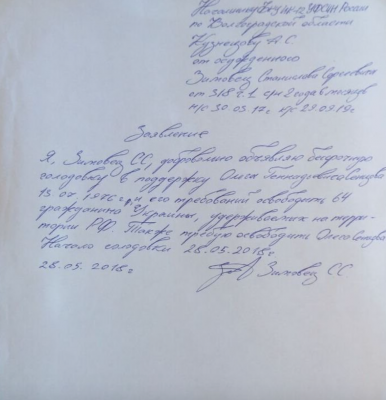 Начальнику ФКУ ИК-12 УФСИН России
по Волгоградской области
Кузнецову А С
от осужденного
Зимовец Станислава Сергеевича
ст 318 ч. 1 срн 2 года 6 месяцев
н/с 30.03.17г к/с 29.09.19г
Заявление
Я, Зимовец СС, добровольно объявляю бессрочную
голодовку в поддержку Олега Геннадьевича Сенцова
13.07.1976г, и его требований освободить 64
гражданина Украины, удерживаемых на терри-
тории РФ. Также требую освободить Олега Сенцова
Начало голодовки 28.05.2018г
28.05.2018г Зимовец СС